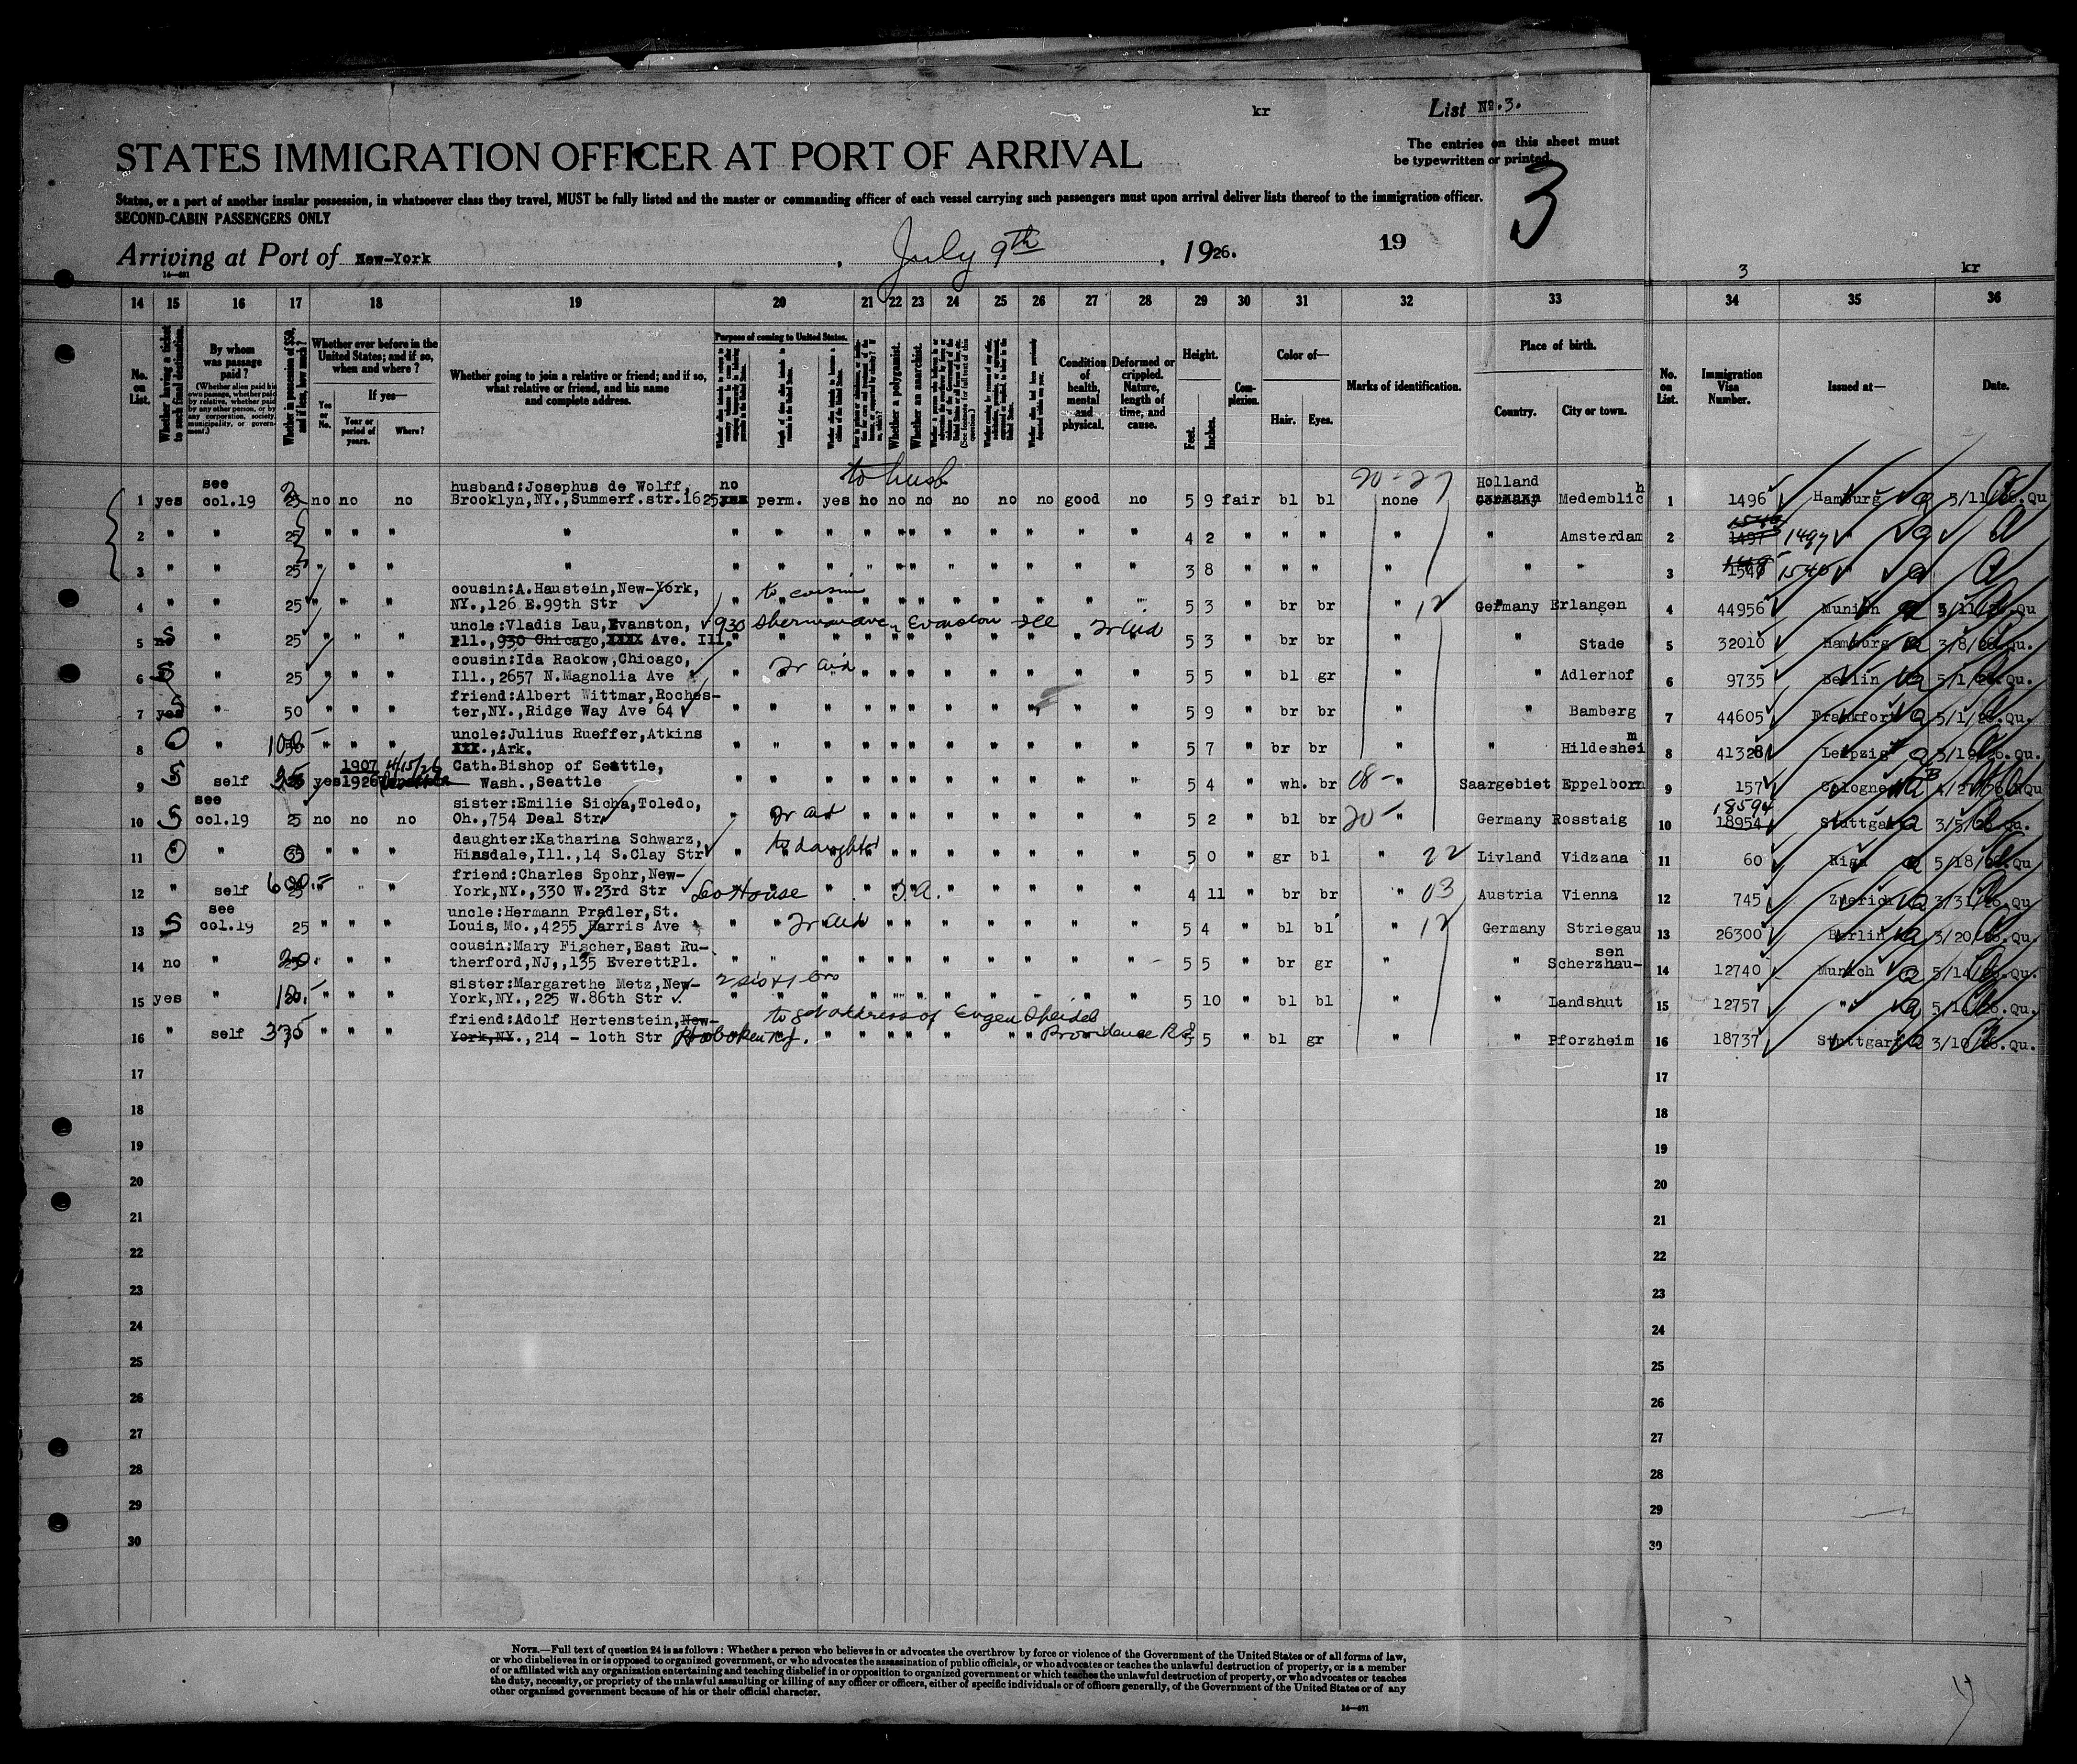 kr
List No. 3.
The entries on this sheet must
be typewritten or printed.
3
STATES IMMIGRATION OFFICER AT PORT OF ARRIVAL
States, or a port of another insular possession, in whatsoever class they travel, MUST be fully listed and the master or commanding officer of each vessel carrying such passengers must upon arrival deliver lists thereof to the immigration officer.
SECOND-CABIN PASSENGERS ONLY
Arriving at Port of New-York, July 9th, 1926.
19
3 kr
14—491
14 15 16 17 18 19 20 21 22 23 24 25 26 27 28 29 30 31 32 33 34 35 36
No. on List.
Whether having a ticket to such final destination.
By whom was passage paid?
(Whether alien paid his own passage, whether paid by relative, whether paid by any other person, or by any corporation, society, municipality, or government.)
Whether in possession of $50, and if less, how much?
Whether ever before in the United States; and if so, when and where?
If yes—
Yes or No.
Year or period of years.
Where?
Whether going to join a relative or friend; and if so, what relative or friend, and his name and complete address.
Purpose of coming to United States.
Whether a polygamist.
Whether an anarchist.
Condition of health, mental and physical.
Deformed or crippled. Nature, length of time, and cause.
Height.
Feet.
Inches.
Complexion.
Color of—
Hair.
Eyes.
Marks of identification.
Place of birth.
Country.
City or town.
No. on List.
Immigration Visa Number.
Issued at—
Date.
to husb
20-27
see husband:Josephus de Wolff, no Holland h
1 yes col.19 25 no no no Brooklyn,NY.,Summerf.str.1625 perm. yes no no no no no no good no 5 9 fair bl bl none Germany Medemblic 1 1496 Hamburg 5/11/26.Qu
2 " " 25 " " " " " " " " " " " " " " " 4 2 " " " " " Amsterdam 2 1497 1497 "
3 " " 25 " " " " " " " " " " " " " " " 3 8 " " " " " " 3 1540
cousin:A.Haustein,New-York, to cousin
4 " " 25 " " " NY.,126 E.99th Str " " " " " " " " " " " 5 3 " br br " 12 Germany Erlangen 4 44956 Munich 5/11/26.Qu
uncle:Vladis Lau,Evanston, 930 Sherman Ave, Evanston Ill
5 no " 25 " " " Ill.,930 Chicago,XXXX Ave. Ill. " " " " " " " " " " 5 3 " br br " " Stade 5 32010 Hamburg 3/8/26.Qu.
cousin:Ida Rackow,Chicago,
6 " 25 " " " Ill.,2657 N.Magnolia Ave " " " " " " " " " " 5 5 " bl gr " " Adlerhof 6 9735 Berlin 5/1/26.Qu.
friend:Albert Wittmar,Roches-
7 yes " 50 " " " ter,NY.,Ridge Way Ave 64 " " " " " " " " " " 5 9 " br br " " Bamberg 7 44605 Frankfort 5/1/26.Qu.
uncle:Julius Rueffer,Atkins m
8 " 100- " " " XXX.,Ark. " " " " " " " " " " 5 7 " br br " " Hildeshei 8 41328 Leipzig 5/19/26.Qu.
1907 4/15/26 Cath.Bishop of Seattle,
9 self 35 yes 1926 Wash.,Seattle " " " " " " " " " " 5 4 " wh. br 08- " Saargebiet Eppelborn 9 157 Cologne 4/27/26 NQu
see sister:Emilie Sicha,Toledo, 18594
10 col.19 25 no no no Oh.,754 Deal Str. " " " " " " " " " " 5 2 " bl br 20- " Germany Rosstaig 10 18954 Stuttgart 3/5/26.Qu.
daughter:Katharina Schwarz, to daughter
11 " 35 " " " Hinsdale,Ill.,14 S.Clay Str " " " " " " " " " " 5 0 " gr bl " 22 Livland Vidzana 11 60 Riga 5/18/26.Qu
friend:Charles Spohr,New-
12 " self 600.- " " " York,NY.,330 W.23rd Str Leo House " " " " " " " " 4 11 " br br " 03 Austria Vienna 12 745 Zuerich 3/31/26.Qu
see uncle:Hermann Pradler,St.
13 col.19 25 " " " Louis,Mo.,4255 Harris Ave " " " " " " " " " " 5 4 " bl bl " 12 Germany Striegau 13 26300 Berlin 3/20/26.Qu.
cousin:Mary Fischer,East Ru- sen
14 no " " " " therford,NJ,,135 EverettPl. " " " " " " " " " " 5 5 " br gr " " Scherzhau- 14 12740 Munich 5/14/26.Qu.
sister:Margarethe Metz,New- 2 sis & 1 bro
15 yes " " " " York,NY.,225 W.86th Str " " " " " " " " " " 5 10 " bl bl " " Landshut 15 12757 " 5/14/26.Qu.
friend:Adolf Hertenstein,New- to get address of Eugen Speidel
16 " self " " " York,NY.,214 - loth Str Hoboken NJ. " " " " " " Providence R.I. 5 5 " bl gr " Pforzheim 16 18737 Stuttgart 3/10/26.Qu.
17 17
18 18
19 19
20 20
21 21
22 22
23 23
24 24
25 25
26 26
27 27
28 28
29 29
30 30
NOTE.—Full text of question 24 is as follows: Whether a person who believes in or advocates the overthrow by force or violence of the Government of the United States or of all forms of law,
or who disbelieves in or is opposed to organized government, or who advocates the assassination of public officials, or who advocates or teaches the unlawful destruction of property, or is a member
of or affiliated with any organization entertaining and teaching disbelief in or opposition to organized government or which teaches the unlawful destruction of property, or who advocates or teaches
the duty, necessity, or propriety of the unlawful assaulting or killing of any officer or officers, either of specific individuals or of officers generally, of the Government of the United States or of any
other organized government because of his or their official character.
14—491